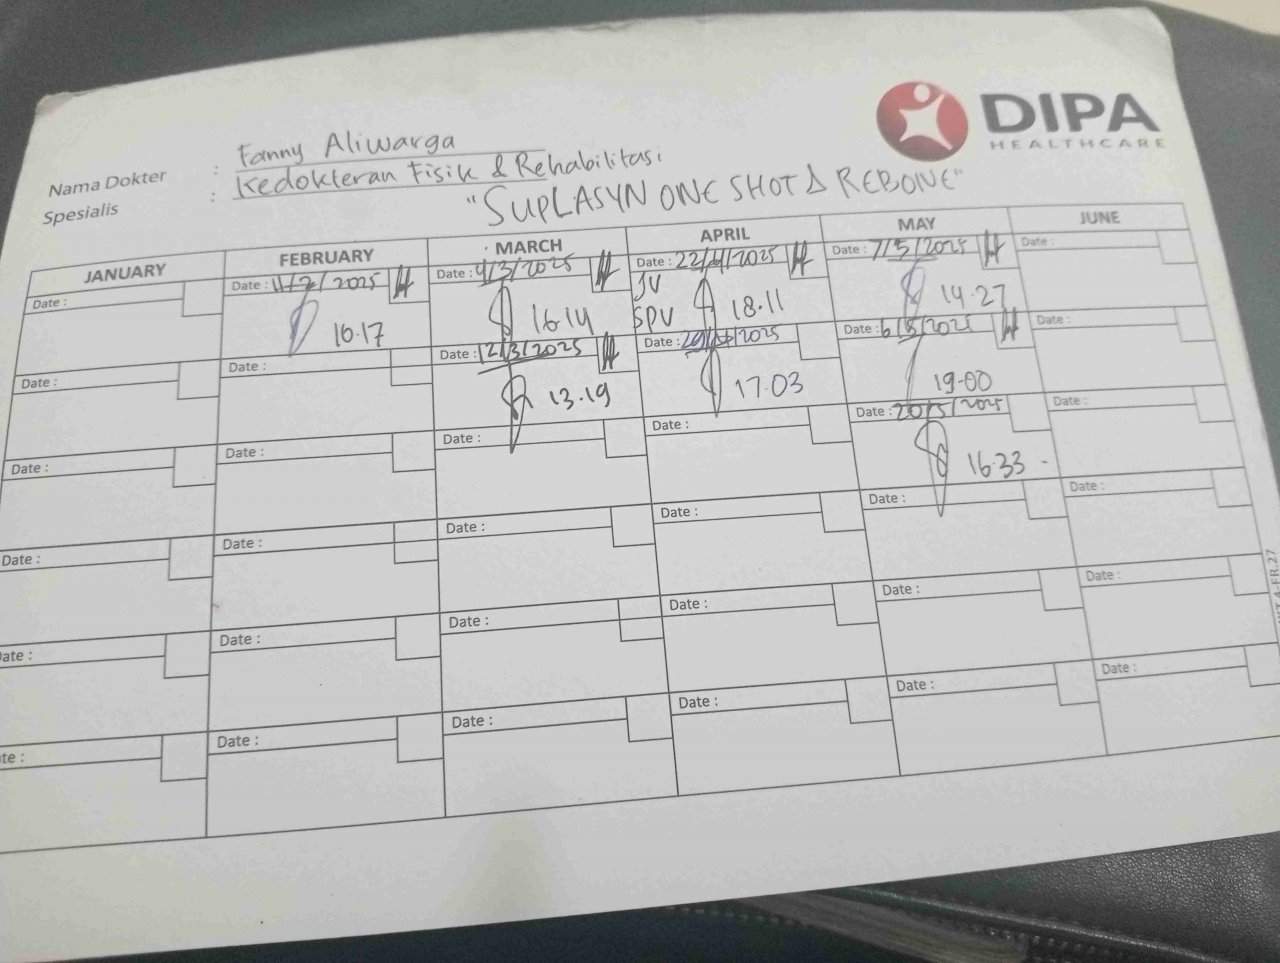 DIPA
HEALTHCARE
Nama Dokter : Fanny Aliwarga
Spesialis : Kedokteran Fisik & Rehabilitasi
"SUPLASYN ONE SHOT & REBONE"
JANUARY FEBRUARY MARCH APRIL MAY JUNE
Date : Date : 11/2/2025 Date : 4/3/2025 Date : 22/4/2025 Date : 7/5/2025 Date :
JV
16.17 16.14 SPV 18.11 14.27
Date : Date : Date : 12/3/2025 Date : 29/4/2025 Date : 6/5/2025 Date :
13.19 17.03 19-00
Date : Date : Date : Date : Date : 20/5/2025 Date :
16.33
Date : Date : Date : Date : Date : Date :
ate : Date : Date : Date : Date : Date :
te : Date : Date : Date : Date : Date :